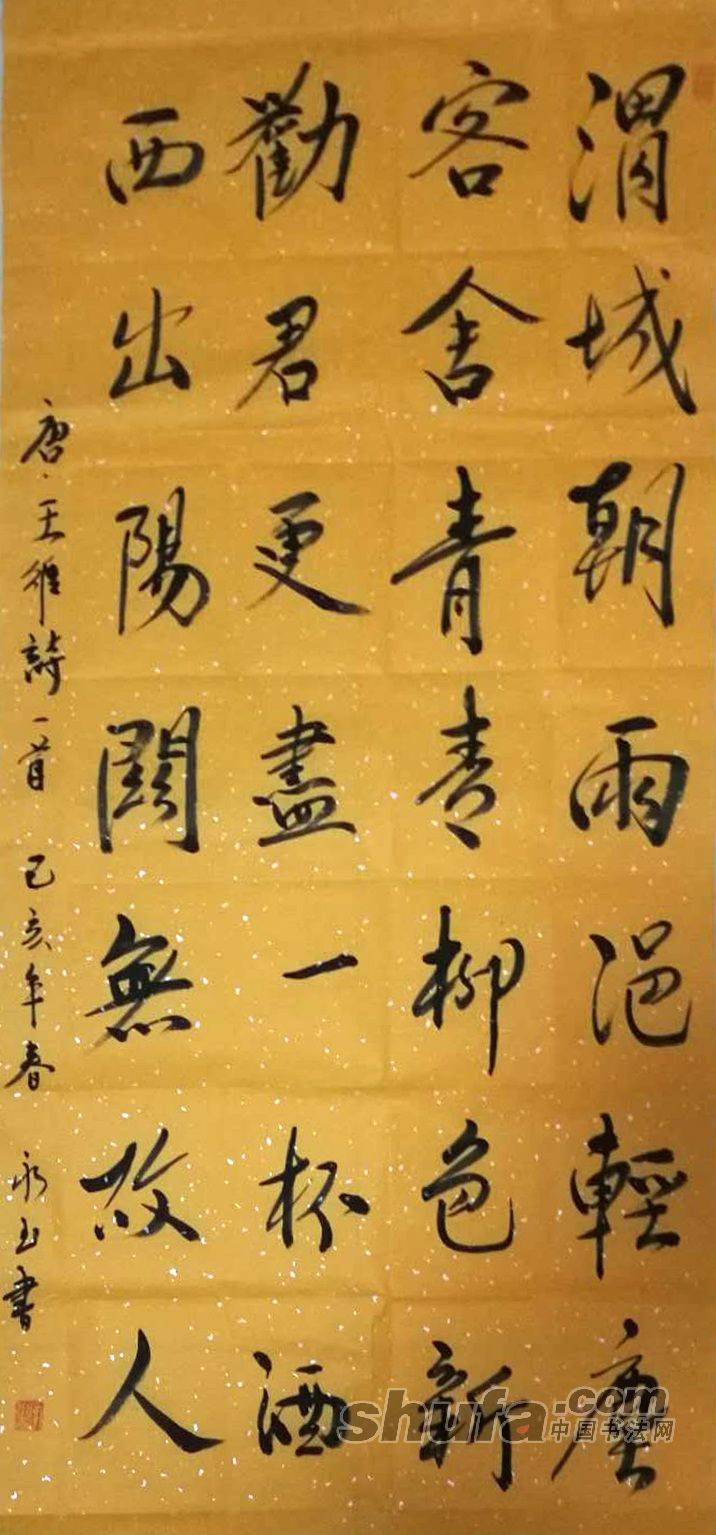 渭城朝雨浥輕塵
客舍青青柳色新
勸君更盡一杯酒
西出陽關無故人
唐·王維詩一首 己亥年春 永玉書
shufa.com
中国书法网